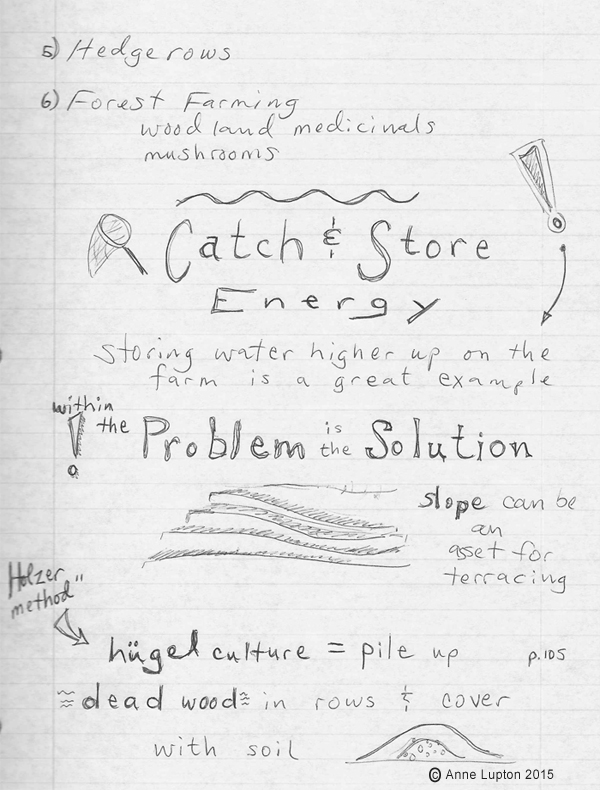 5) Hedgerows
6) Forest Farming
woodland medicinals
mushrooms
Catch & Store
Energy
storing water higher up on the
farm is a great example
within
the Problem is the Solution
slope can be
an
asset for
terracing
Holzer
method"
hügelculture = pile up p.105
≈dead wood≈ in rows & cover
with soil
© Anne Lupton 2015